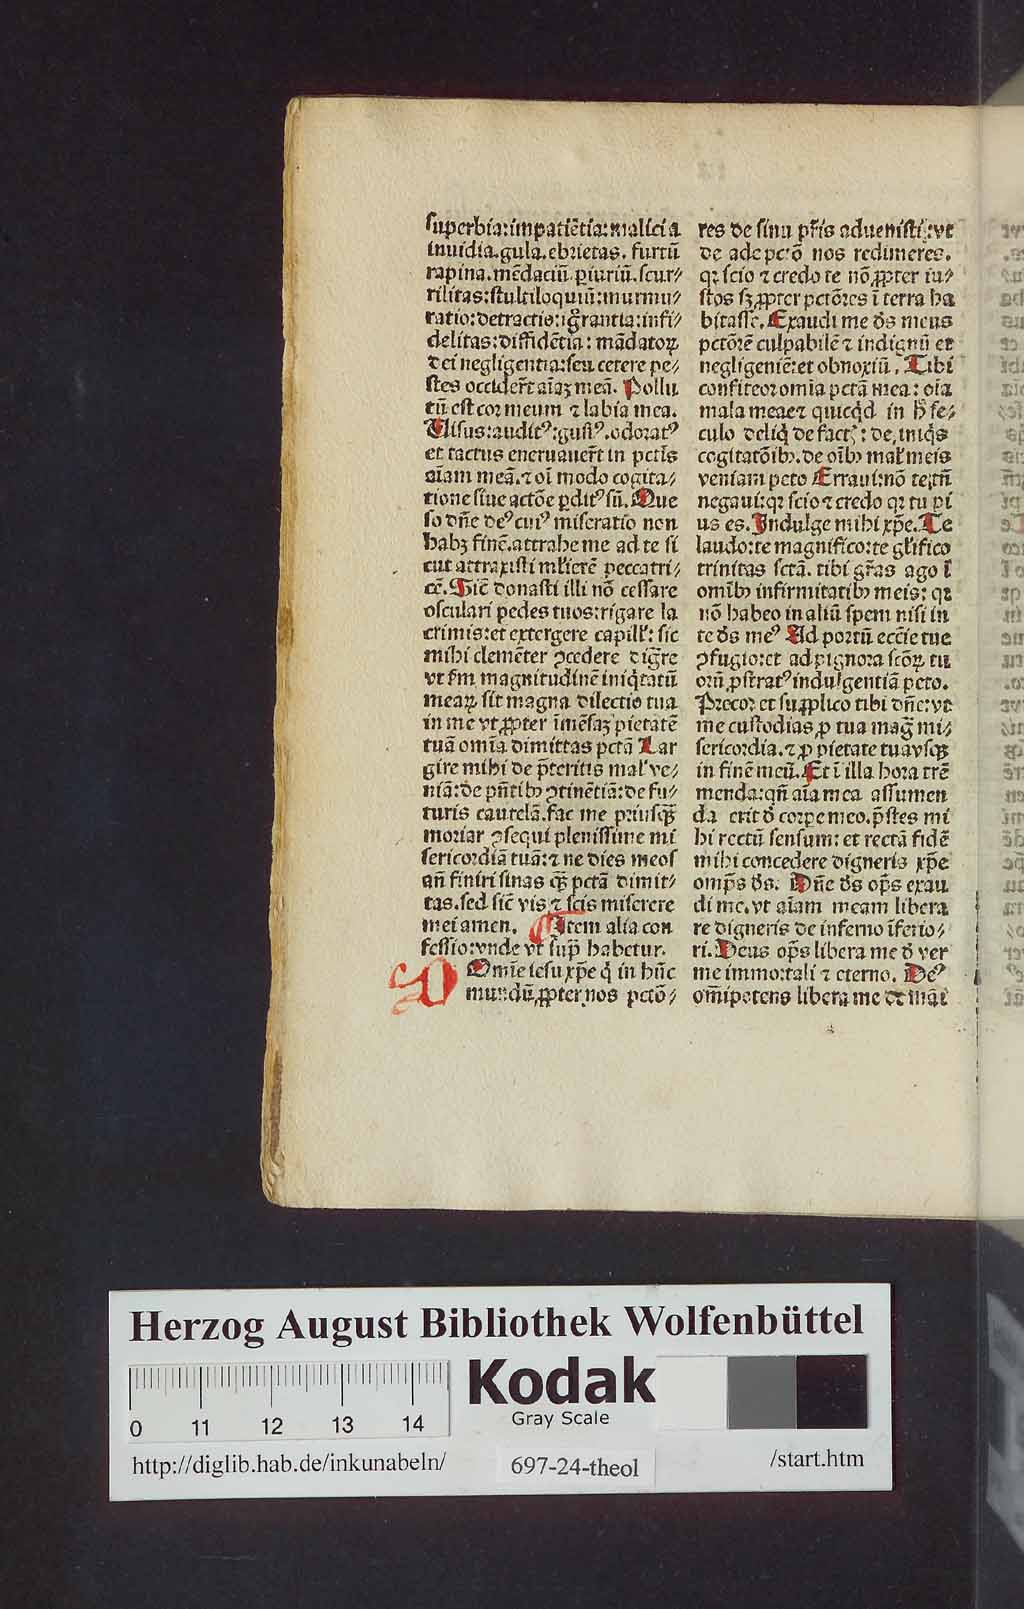 superbia:impatiẽtia:malicia
inuidia.gula.ebrietas. furtũ
rapina.mẽdaciũ.ꝑiuriũ.scur⸗
rilitas:stultiloquiũ:murmu⸗
ratio:detractio:igrãntia:infi⸗
delitas:diffidẽtia: mãdatoꝝ
dei negligentia:seu cetere pe⸗
stes occiderũt aĩaꝫ meã. Pollu
tũ est cor meum ⁊ labia mea.
Uisus:auditꝰ:gustꝰ.odoratꝰ
et tactus eneruauerũt in pctĩs
aĩam meã.⁊ oĩ modo cogita⸗
tione siue actõe ꝑditꝰ sũ. Que
so dñe deꝰ cuiꝰ miseratio non
habꝫ finẽ.attrahe me ad te si
cut attraxisti mĺierẽ peccatri⸗
cẽ. Sic̃ donasti illi nõ cessare
osculari pedes tuos:rigare la
crimis:et extergere capilĺ: sic
mihi clemẽter ꝯcedere digr̃e
vt ẜm magnitudinẽ iniq̃tatũ
meaꝝ sit magna dilectio tua
in me vt ꝓpter ĩmẽsaꝫ pietatẽ
tuã omĩa dimittas pctã Lar
gire mihi de p̃teritis maĺ ve⸗
niã:de pñtibꝰ ꝯtinẽtiã:de fu⸗
turis cautelã.fac me priusꝗ̃
moriar ꝯsequi plenissime mi
sericordiã tuã:⁊ ne dies meos
añ finiri sinas ꝗ̃ pctã dimit⸗
tas.sed sic̃ vis ⁊ scis miserere
mei amen. Item alia con
fessio:vnde vt sup̃ habetur.
DOmĩe iesu xp̃e q̃ in hũc
mundũ ꝓpter nos pctõ⸗
res de sinu pr̃is aduenisti:vt
de ade pctõ nos redimeres.
qꝛ scio ⁊ credo te nõ ꝓpter iu⸗
stos sꝫ ꝓpter pctõres ĩ terra ha
bitasse. Exaudi me ds̃ meus
pctõrẽ culpabilẽ ⁊ indignũ et
negligeniẽ:et obnoxiũ. Tibi
confiteor omĩa pctã mea: oĩa
mala mea et quicq̃d in hͦ se⸗
culo deliq̃ de factꝭ: de iniq̃s
cogitatõibꝰ.de oĩbꝰ maĺ meis
veniam peto Erraui:nõ te tñ
negaui:qꝛ scio ⁊ credo qꝛ tu pi
us es. Indulge mihi xp̃e. Te
laudo:te magnifico:te gĺifico
trinitas sctã. tibi gr̃as ago ĩ
omĩbꝰ infirmitatibꝰ meis: qꝛ
nõ habeo in aliũ spem nisi in
te ds̃ meꝰ Ad portũ ecc̃ie tue
ꝯfugio:et ad pignora sc̃oꝝ tu
orũ ꝓstratꝰ indulgentiã peto.
Precor et supplico tibi dñe:vt
me custodias ꝓ tua mag̃ mi⸗
sericordia.⁊ ꝓ pietate tua vsꝙ
in finẽ meũ. Et ĩ illa hora trẽ
menda:qñ aĩa mea assumen
da erit ð corpe meo.p̃stes mi
hi rectũ sensum: et rectã fidẽ
mihi concedere digneris xp̃e
omp̃s ds̃. Dñe ds̃ op̃s exau
di me.vt aĩam meam libera
re digneris de inferno ĩferio⸗
ri. Deus op̃s libera me ð ver
me immortali ⁊ eterno. Deꝰ
om̃ipotens libera me de mãi
Herzog August Bibliothek Wolfenbüttel
Kodak
Gray Scale
0 11 12 13 14
http://diglib.hab.de/inkunabeln/
697-24-theol
/start.htm